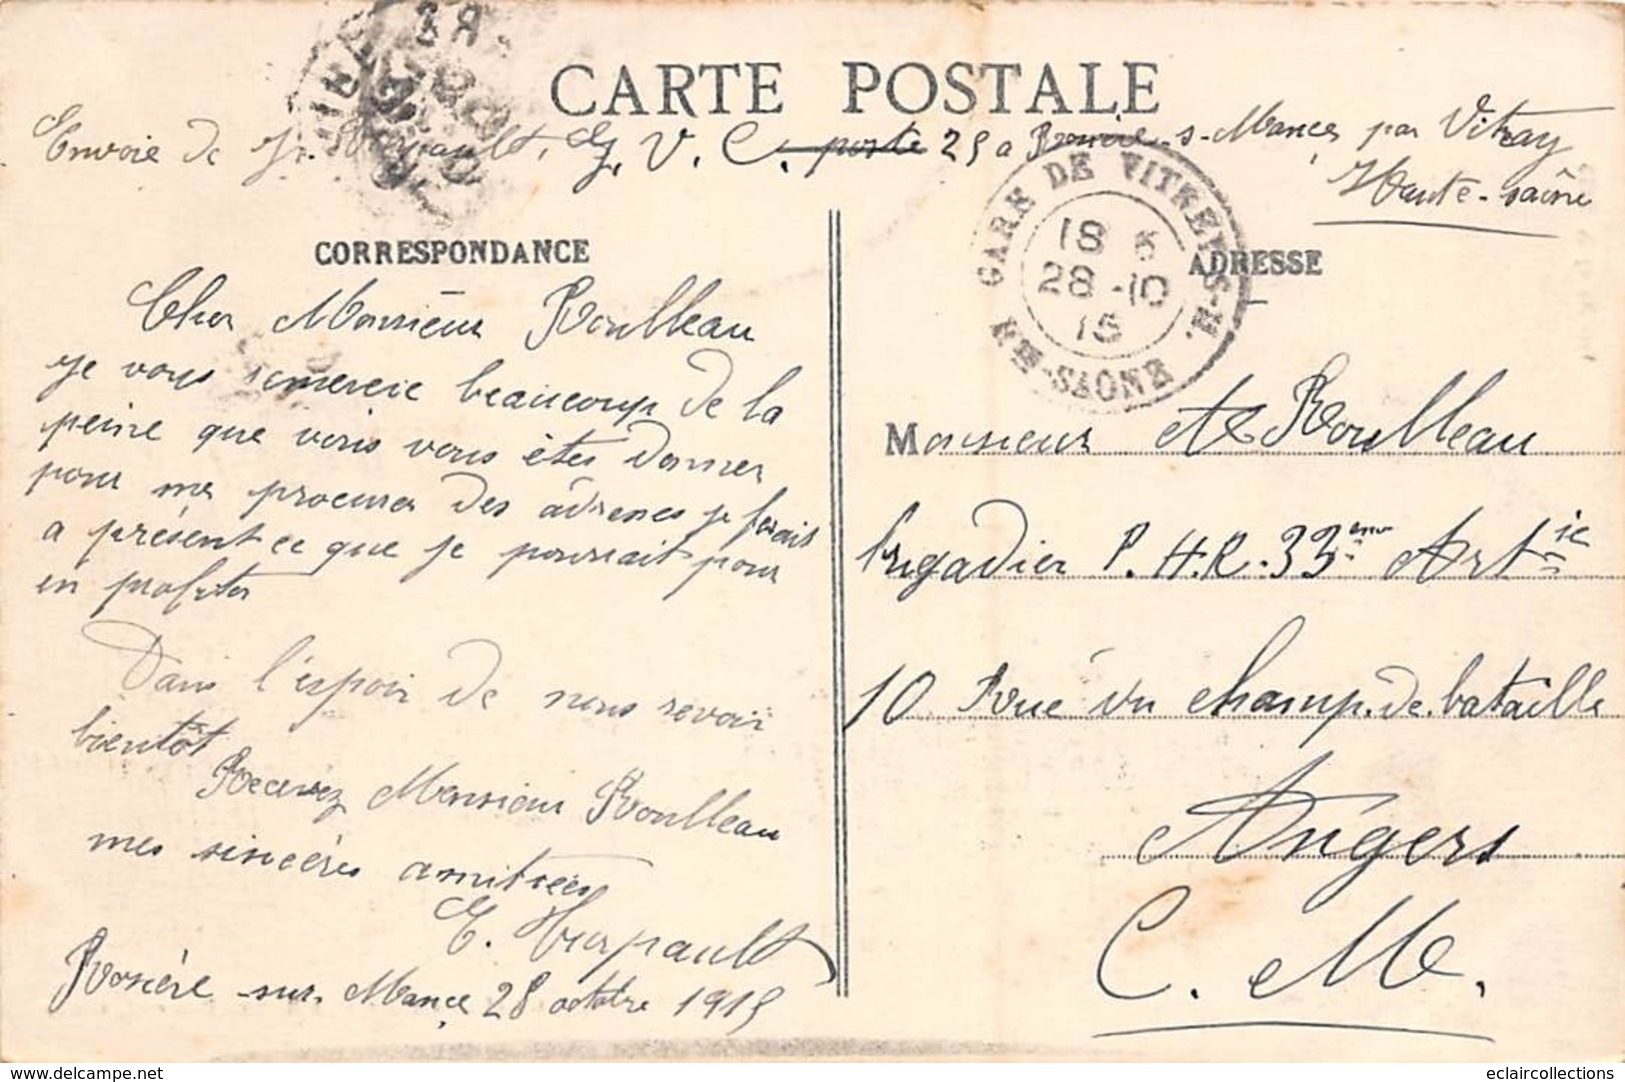 CARTE POSTALE
Envoie de Thirpault, G. V. C. poste 25 a Rosière-s-Mance par Vitray
Haute-saône
GARE DE VITREY-S-M.
18
28-10
15
HTE-SAONE
CORRESPONDANCE
ADRESSE
Cher Monsieur Roulleau
je vous remercie beaucoup de la
peine que vous vous êtes donner
pour me procurer des adresses je ferait
a présent ce que je pourrait pour
en profiter
Dans l'espoir de nous revoir
bientôt
Recevez Monsieur Roulleau
mes sincères amitiées
E. Thirpault
Rosière-sur-Mance 28 octobre 1915
Monsieur A Roulleau
brigadier P.H.R. 33ème Artie
10 Rue du champ-de-bataille
Angers
C. M.
www.delcampe.net
eclaircollections